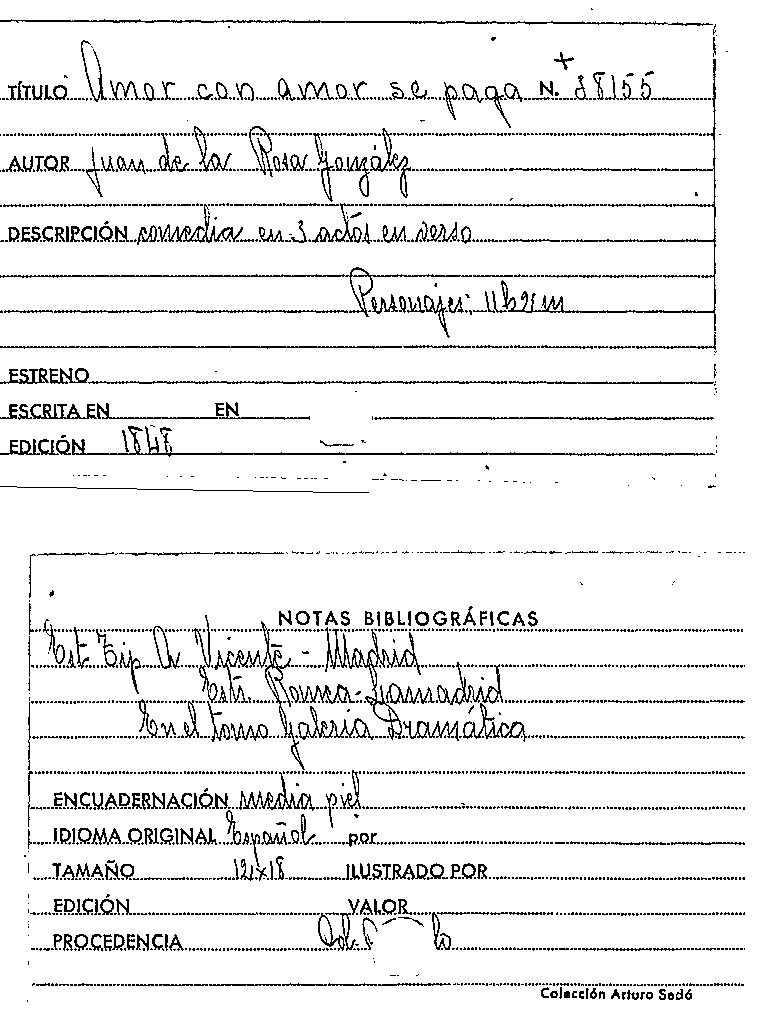 TÍTULO Amor con amor se paga N. 38155
AUTOR Juan de la Rosa González
DESCRIPCIÓN comedia en 3 actos en verso
Personajes:
ESTRENO
ESCRITA EN EN
EDICIÓN 1848
NOTAS BIBLIOGRÁFICAS
Est Tip A Vicente - Madrid
Estr. Romea-Lamadrid
En el tomo Galeria Dramática
ENCUADERNACIÓN media piel
IDIOMA ORIGINAL Español por
TAMAÑO 12x18 ILUSTRADO POR
EDICIÓN VALOR
PROCEDENCIA
Colección Arturo Sedó